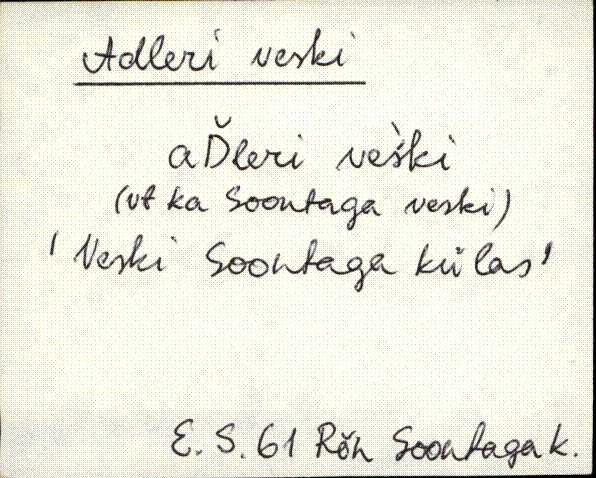 Adleri veski
aĎleri vès̀ki
(vt ka Soontaga veski)
'Veski Soontaga külas'
E. S. 61 Rõn Soontaga k.